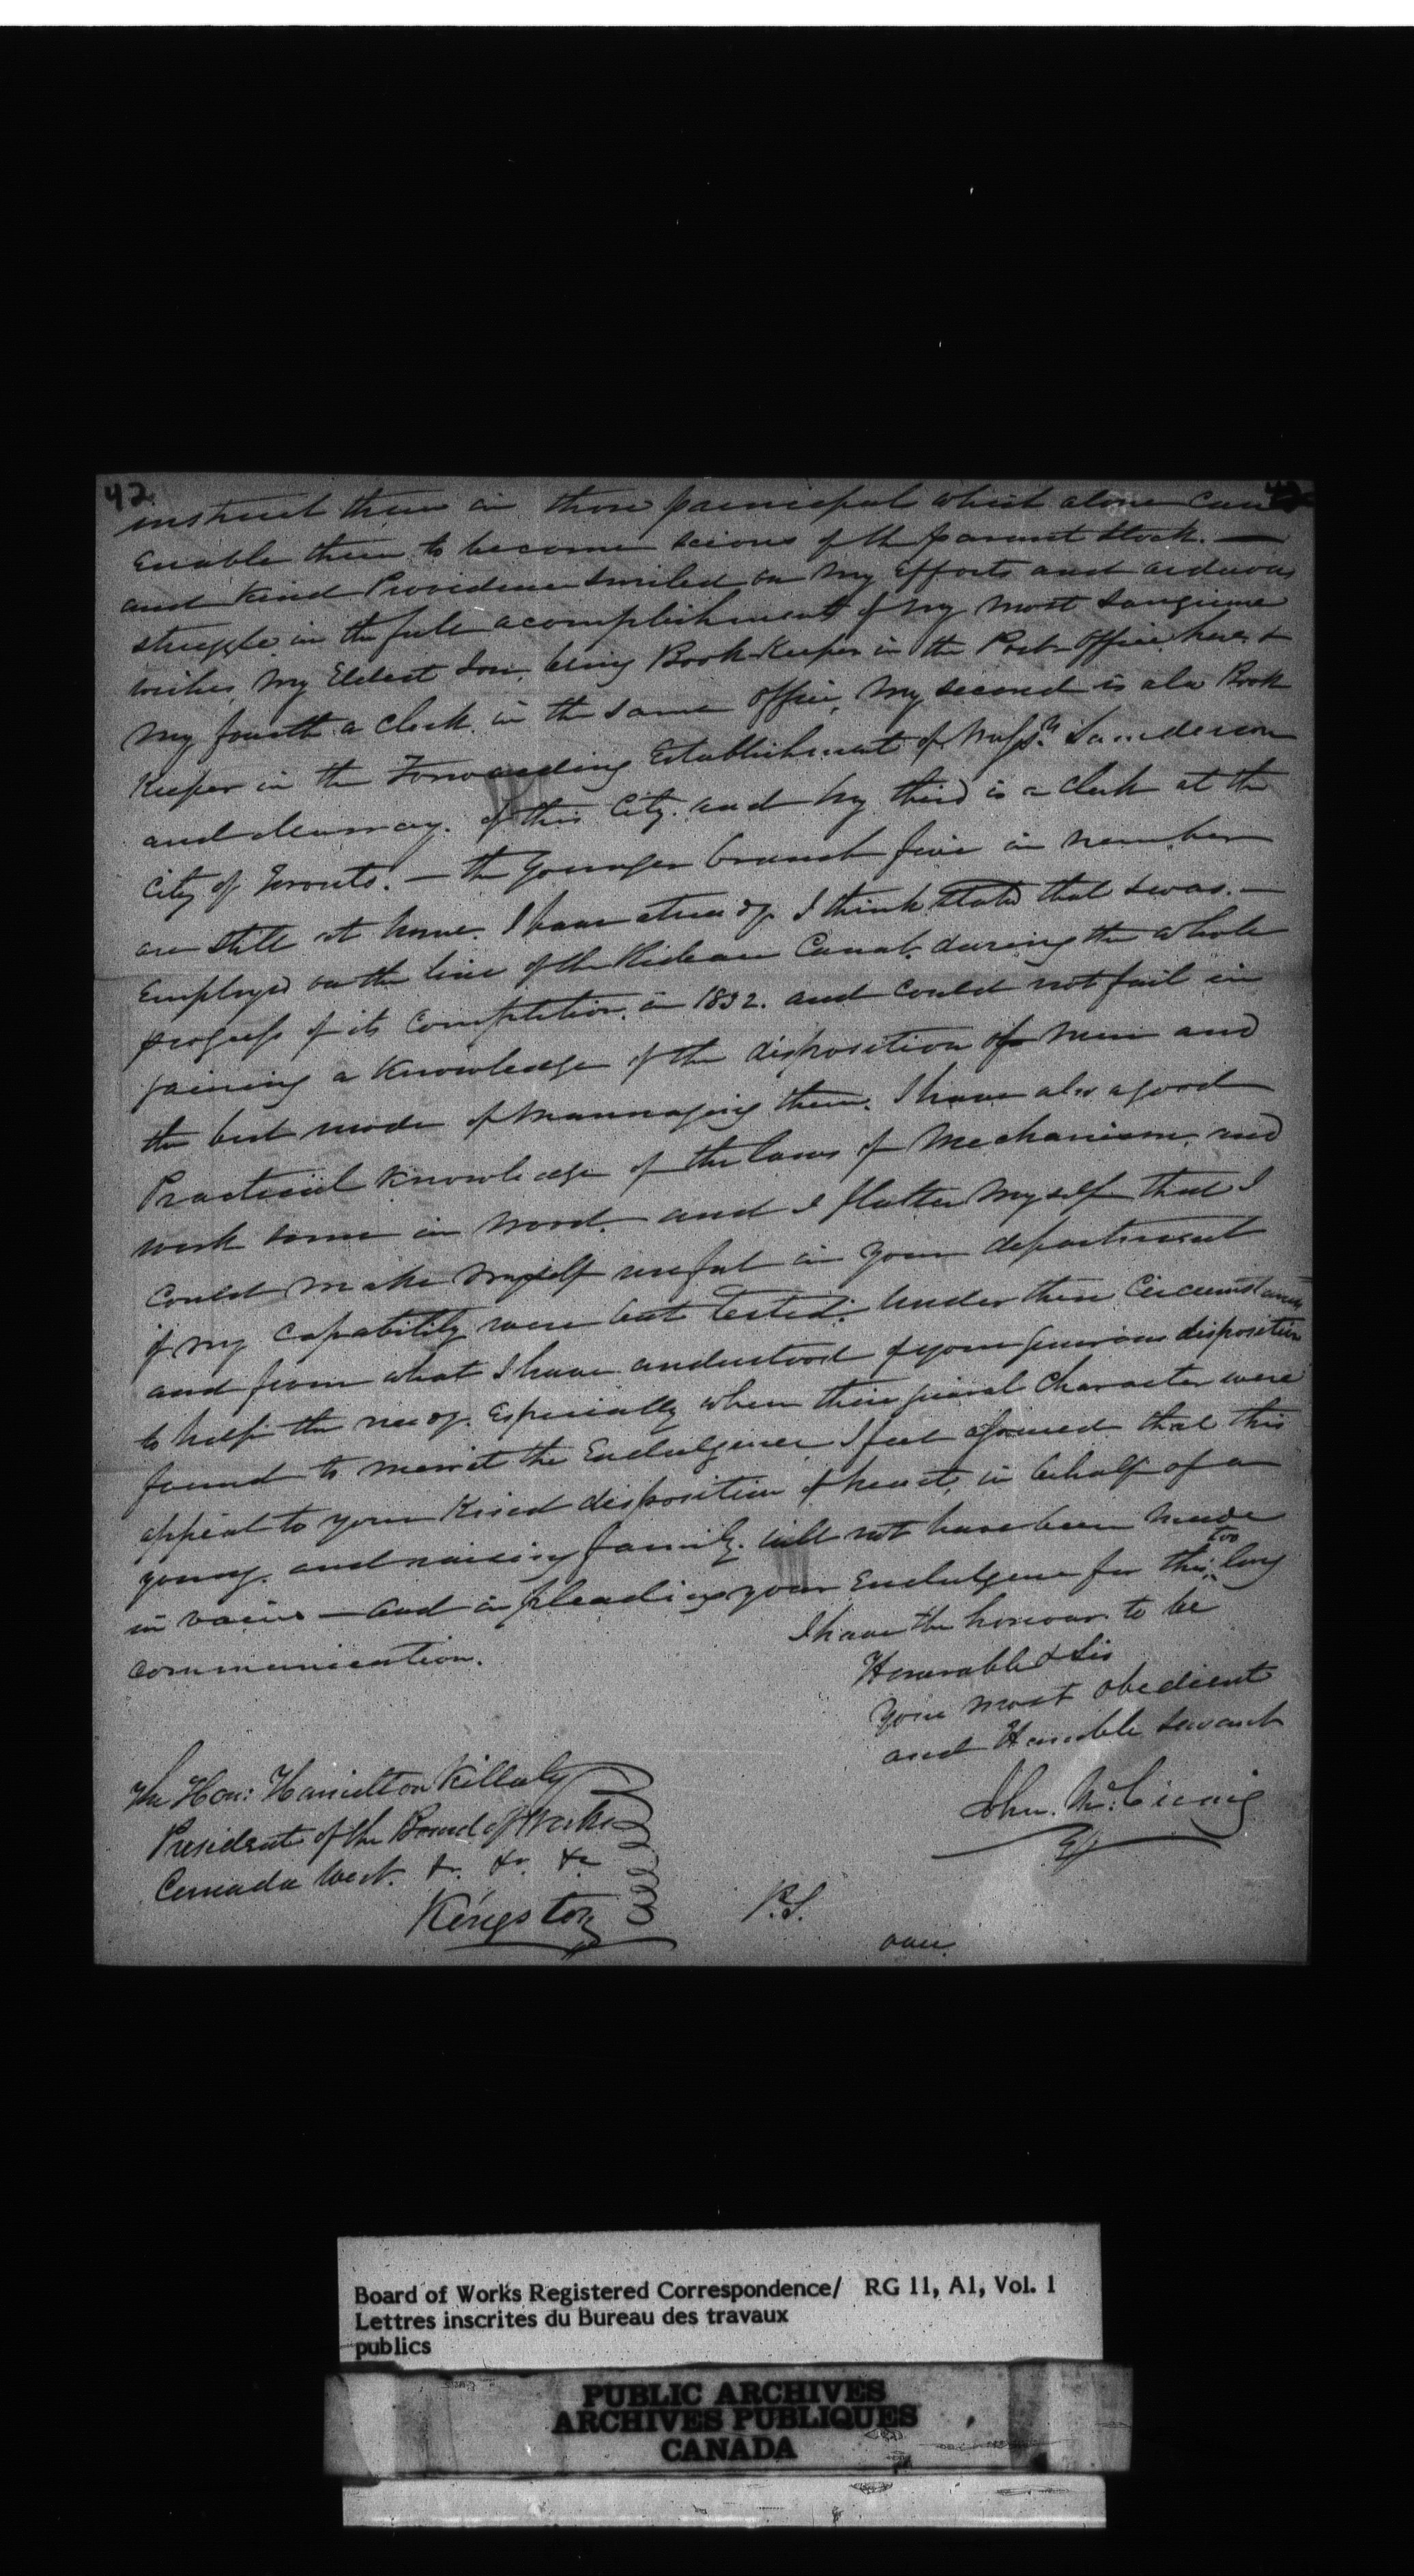 42
instruct them in those principal which alone can
Enable them to become scions of the parent stock. —
and Kind Providence smiled on my Efforts and arduous
struggle in the full acomplishment of my most sanguine
wishes, my Eldest Son, being Book-Keeper in the Post-office here &
My fourth a Clerk in the same office, My second is also Book
Keeper in the Forwarding Establishment of Mess.rs Sanderson
and Murray. of this City. and my third is a Clerk at the
City of Toronto. — the younger branch five in number
are still at home. I have already I think stated that I was. —
Employed on the line of the Rideau Canal. during the whole
progress of its Completition. in 1832. and could not fail in
gaining a Knowledge of the disposition of men and
the best mode of mannaging them. I have also a good
Practical Knowledge of the laws of Mechanism, and
work some in wood. and I flatter myself that I
could make myself useful in your department
if my capability were but tested. Under these Circumstances
and from what I have understood of your generous disposition
to help the needy. Especially when their Character were
found to merrit the Endulgence I feel assured that this
appeal to your Kind disposition of heart, in behalf of a
young. and raising family. will not have been made
in vain — and in pleading your Endulgence for this too long
communication.
I have the honour to be
Honorable & Sir
Your most obedient
and Humble Servant
John
The Hon: Hamilton Killaly
President of the Board of Works
Canada West. &c. &c. &c
Kingston
P.S.
over.
Board of Works Registered Correspondence/ RG 11, A1, Vol. 1
Lettres inscrites du Bureau des travaux
publics
PUBLIC ARCHIVES
ARCHIVES PUBLIQUES
CANADA